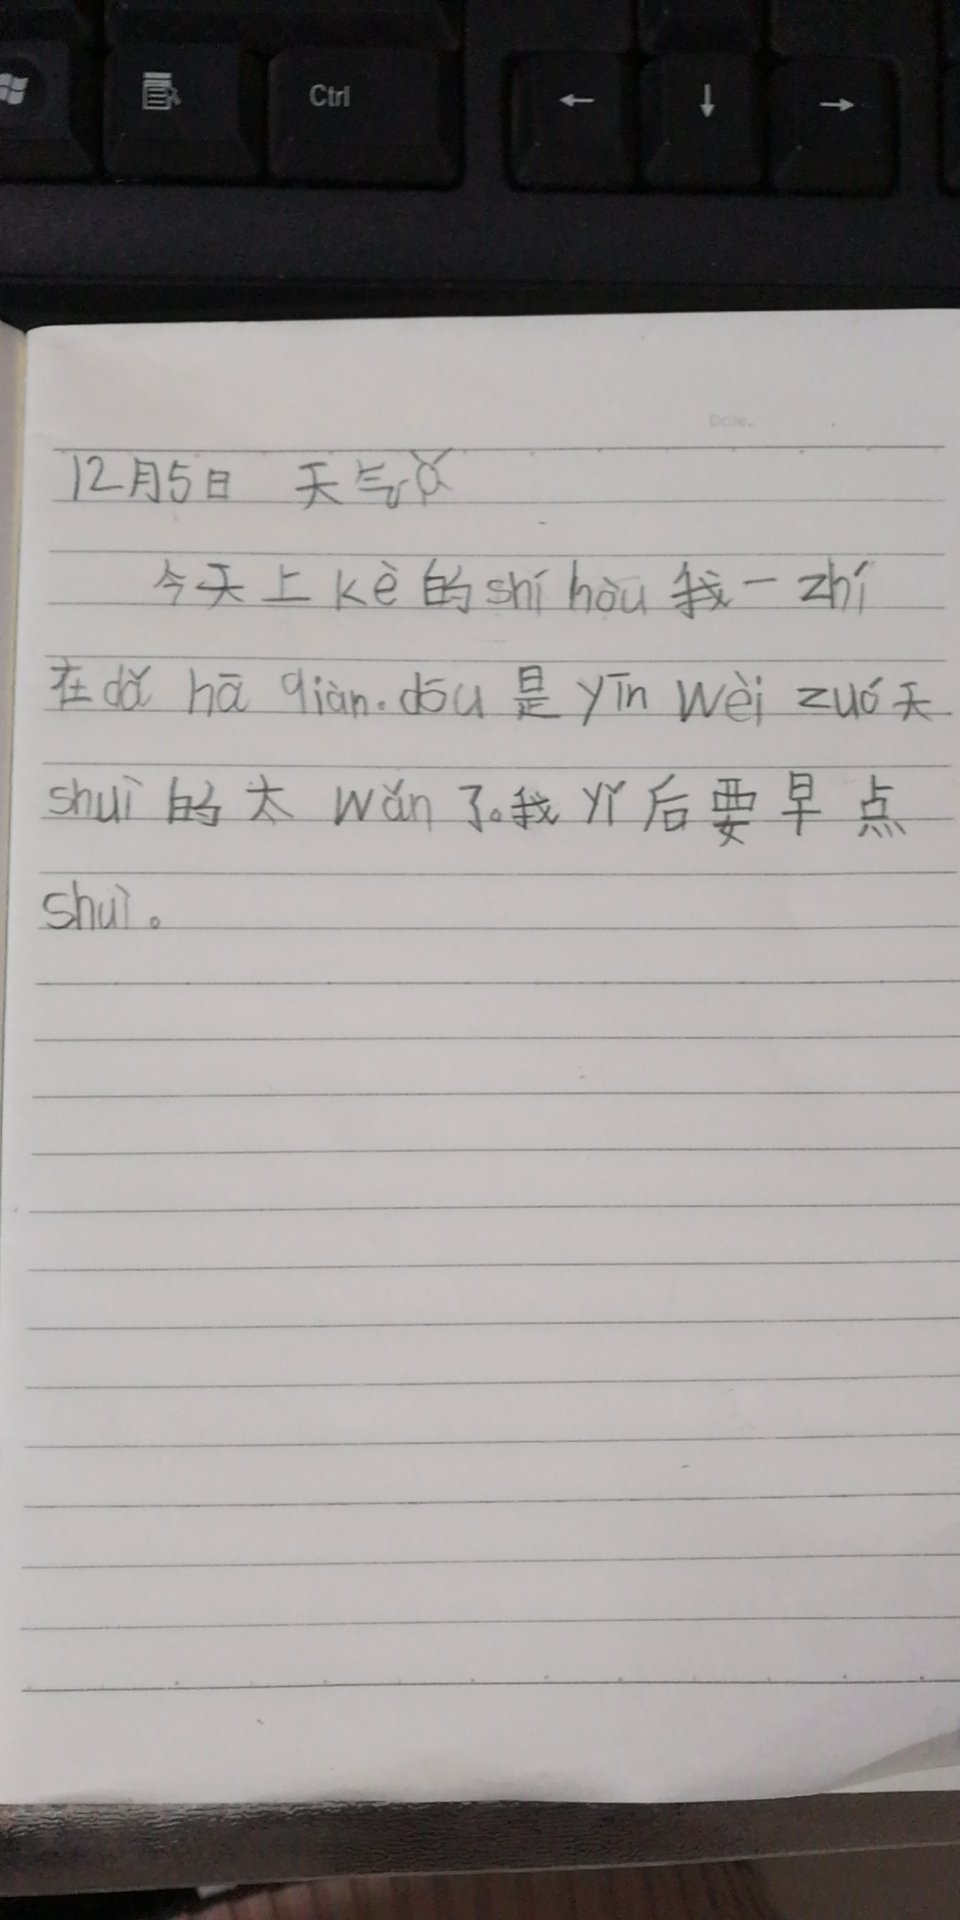 Ctrl
← ↓ →
Date.
12月5日 天气
今天上kè的shí hòu我一zhí
在dǎ hā qiàn.dōu是yīn wèi zuó天
shuì的太wǎn了。我yǐ后要早点
shuì。